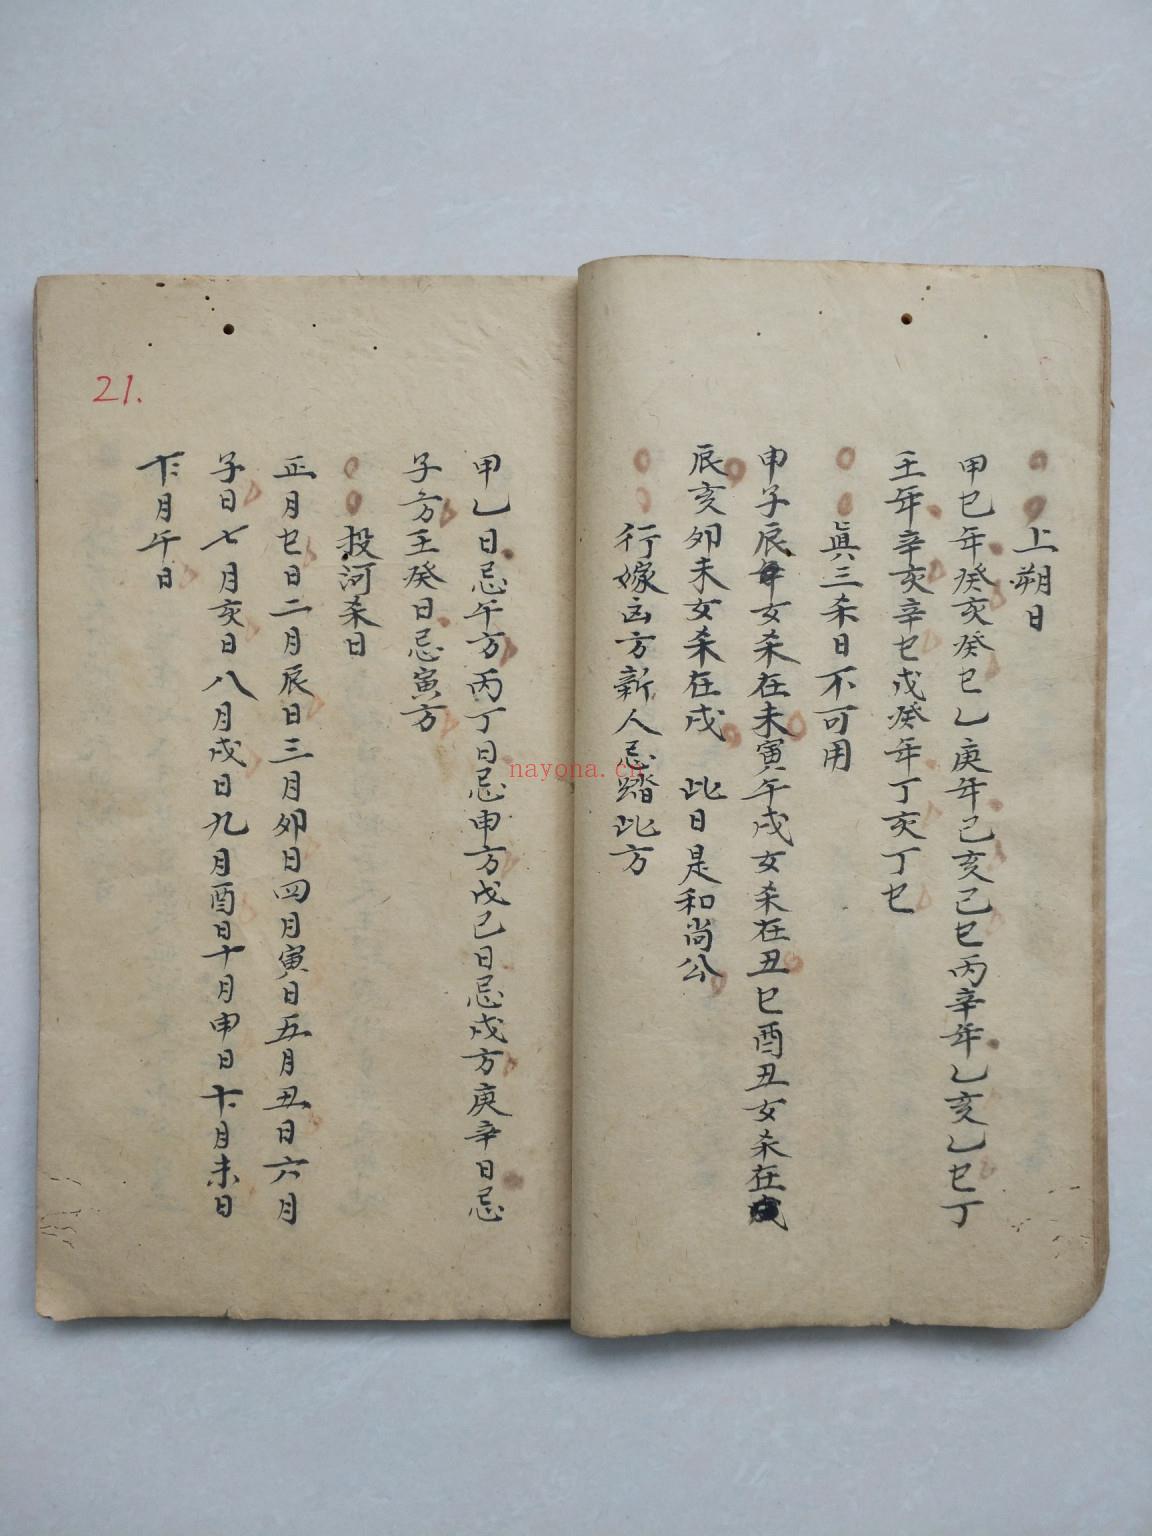 上朔日
甲巳年癸亥癸巳乙庚年己亥己巳丙辛年乙亥乙巳丁
壬年辛亥辛巳戊癸年丁亥丁巳
眞三杀日不可用
申子辰年女杀在未寅午戌女杀在丑巳酉丑女杀在
辰亥卯未女杀在戌 此日是和尚公
行嫁凶方新人忌踏此方
甲乙日忌午方丙丁日忌申方戊己日忌戌方庚辛日忌
子方壬癸日忌寅方
投河杀日
正月巳日二月辰日三月卯日四月寅日五月丑日六月
子日七月亥日八月戌日九月酉日十月申日十一月未日
十二月午日
21.
nayona.cn